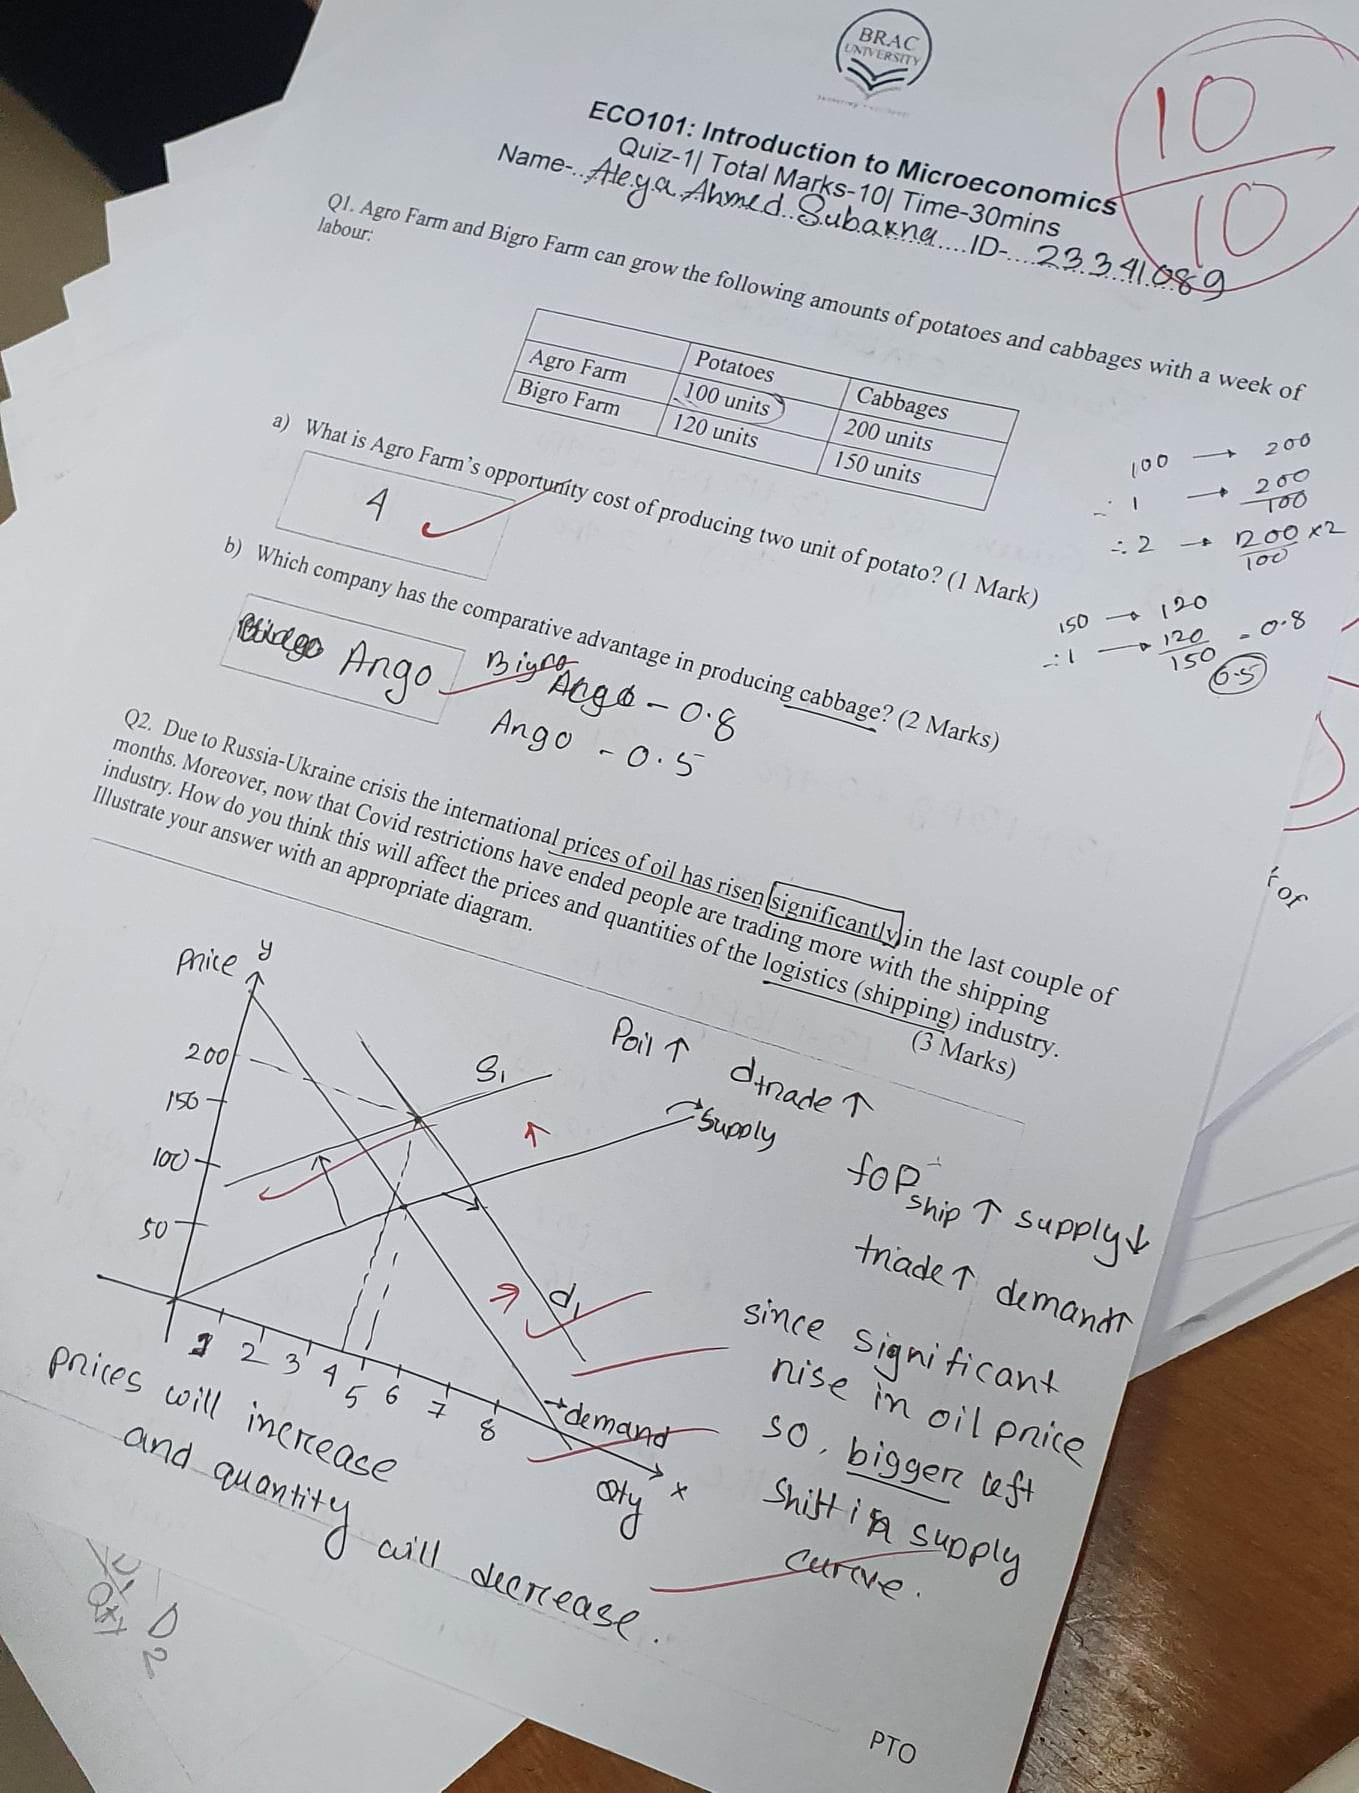 BRAC
UNIVERSITY
ECO101: Introduction to Microeconomics
Quiz-1| Total Marks-10| Time-30mins
Name-..Aleya Ahmed Subarna....ID-...23341089
10
10
Q1. Agro Farm and Bigro Farm can grow the following amounts of potatoes and cabbages with a week of
labour:
Potatoes Cabbages
Agro Farm 100 units 200 units
Bigro Farm 120 units 150 units
100 → 200
∴ 1 → 200/100
∴ 2 → 200/100 ×2
a) What is Agro Farm's opportunity cost of producing two unit of potato? (1 Mark)
4
150 → 120
∴ 1 → 120/150 = 0.8
0.5
b) Which company has the comparative advantage in producing cabbage? (2 Marks)
Ango
Bigro
Ango - 0.8
Ango - 0.5
for
Q2. Due to Russia-Ukraine crisis the international prices of oil has risen significantly in the last couple of
months. Moreover, now that Covid restrictions have ended people are trading more with the shipping
industry. How do you think this will affect the prices and quantities of the logistics (shipping) industry.
Illustrate your answer with an appropriate diagram. (3 Marks)
price y
200
150
100
50
S1
supply
d1
demand
1 2 3 4 5 6 7 8
Qty x
Poil ↑ dtrade ↑
foPship ↑ supply↓
trade↑ demand↑
since significant
rise in oil price
so, bigger left
shift in supply
curve.
prices will increase
and quantity will decrease.
D
2
PTO